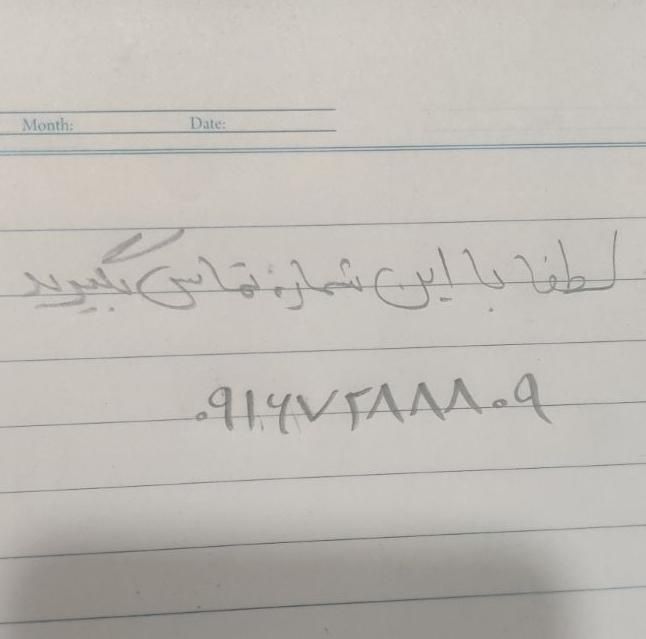 Month: Date:
لطفا با این شماره تماس بگیرید
۰۹۱۶۷۲۸۸۸۰۹